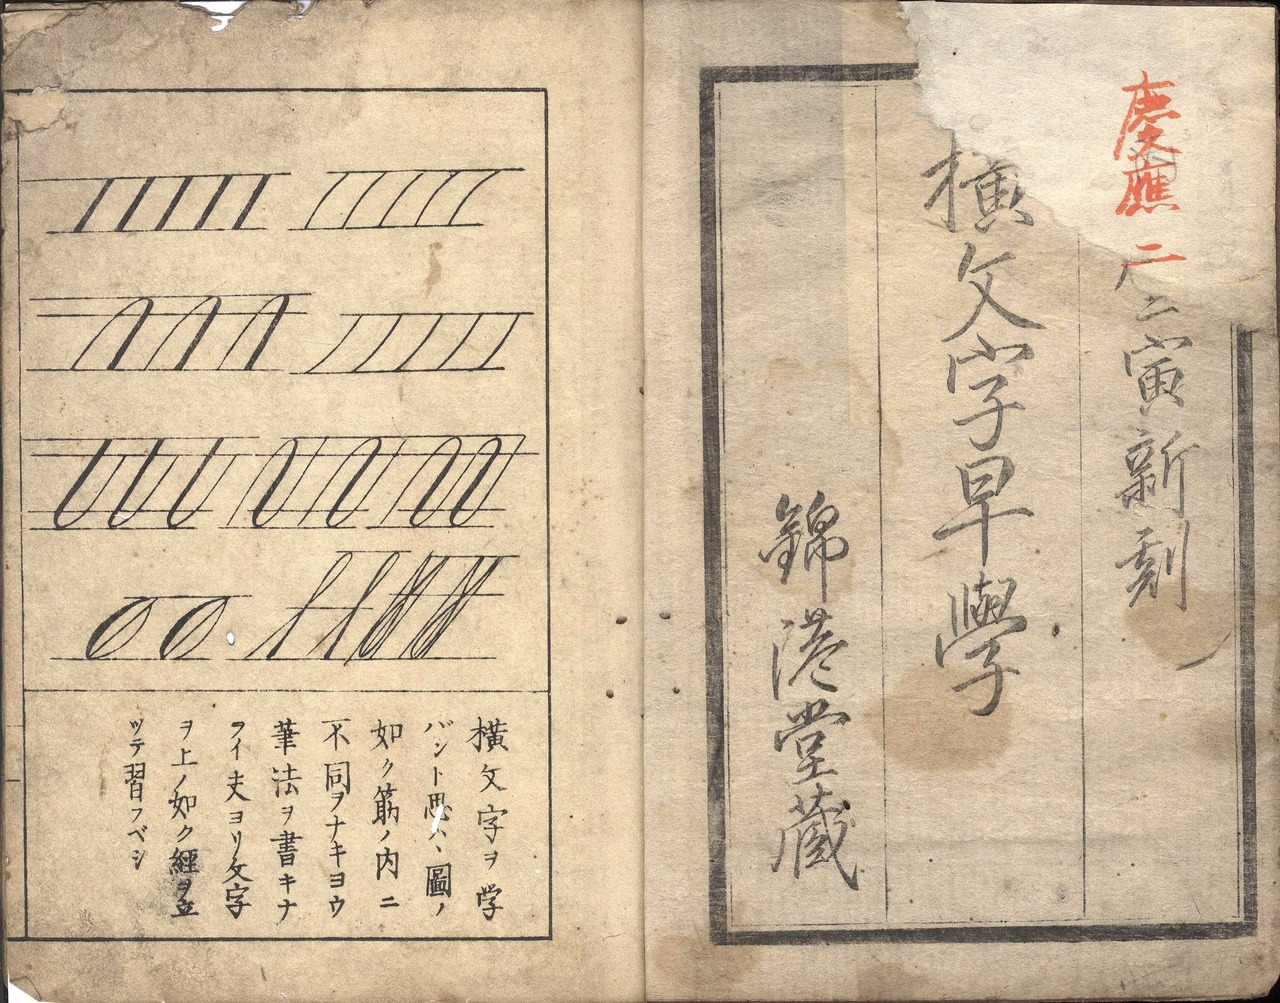 慶應二
寅新刻
横文字早學
錦港堂蔵
横文字ヲ学
バント思ハヽ圖ノ
如ク筋ノ内ニ
不同ヲナキヨウ
筆法ヲ書キナ
ライ夫ヨリ文字
ヲ上ノ如ク經ヲ立
ツテ習フベシ